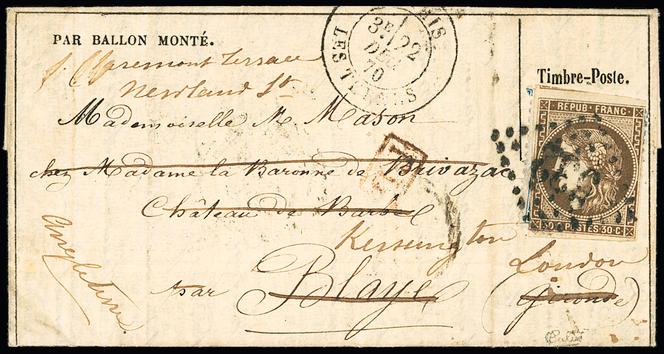 PAR BALLON MONTÉ.
PARIS
3E 22
DEC
70
LES TERNES
Timbre-Poste.
REPUB. FRANC.
POSTES 30 C.
Claremont Terrace
Newland St
Mademoiselle M. Mason
chez Madame la Baronne de Brivazac
Château de Barbe
Kensington
par Blaye
London
(Gironde)
Angleterre